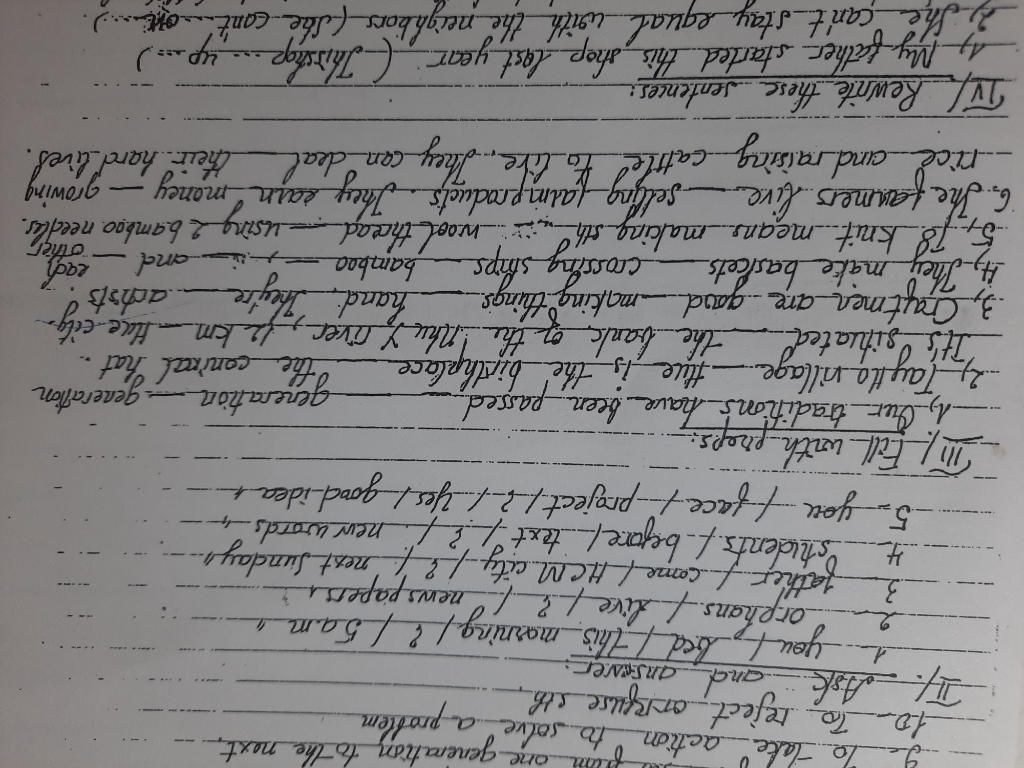 from one generation to the next.
9- To take action to solve a problem
10- To reject or refuse sth.
II/. Ask and answer:
1- you / bed / this morning / ? / 5 a.m "
2- orphans / live / ? / newspapers "
3- father / come / HCM city / ? / next Sunday "
4- students / before / text / ? / new words "
5- you / face / project / ? / yes / good idea "
III/. Fill with preps:
1, Our traditions have been passed ___ ___ generation ___ generation
2, Tay Ho village ___ Hue is the birthplace ___ the conical hat.
It's situated ___ the bank of the Nhu Y river, 12 km ___ Hue city.
3, Craftmen are good ___ making things ___ hand. They're ___ artists
4, They make baskets ___ crossing strips ___ bamboo ___, ___ and ___ each other.
5, To knit means making sth ... wool thread ___ using 2 bamboo needles.
6. The farmers live ___ selling farm products. They earn money ___ growing
rice and raising cattle to live. They can deal ___ their hard lives.
IV/ Rewrite these sentences:
1, My father started this shop last year (This shop .... up ....)
2, She can't stay equal with the neighbors (She can't .... ....)